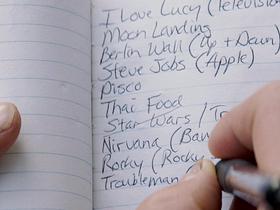 I Love Lucy (Television
Moon Landing
Berlin Wall (Up + Down)
Steve Jobs (Apple)
Disco
Thai Food
Star Wars /
Nirvana (Ban
Rocky (Rocky
Troubleman